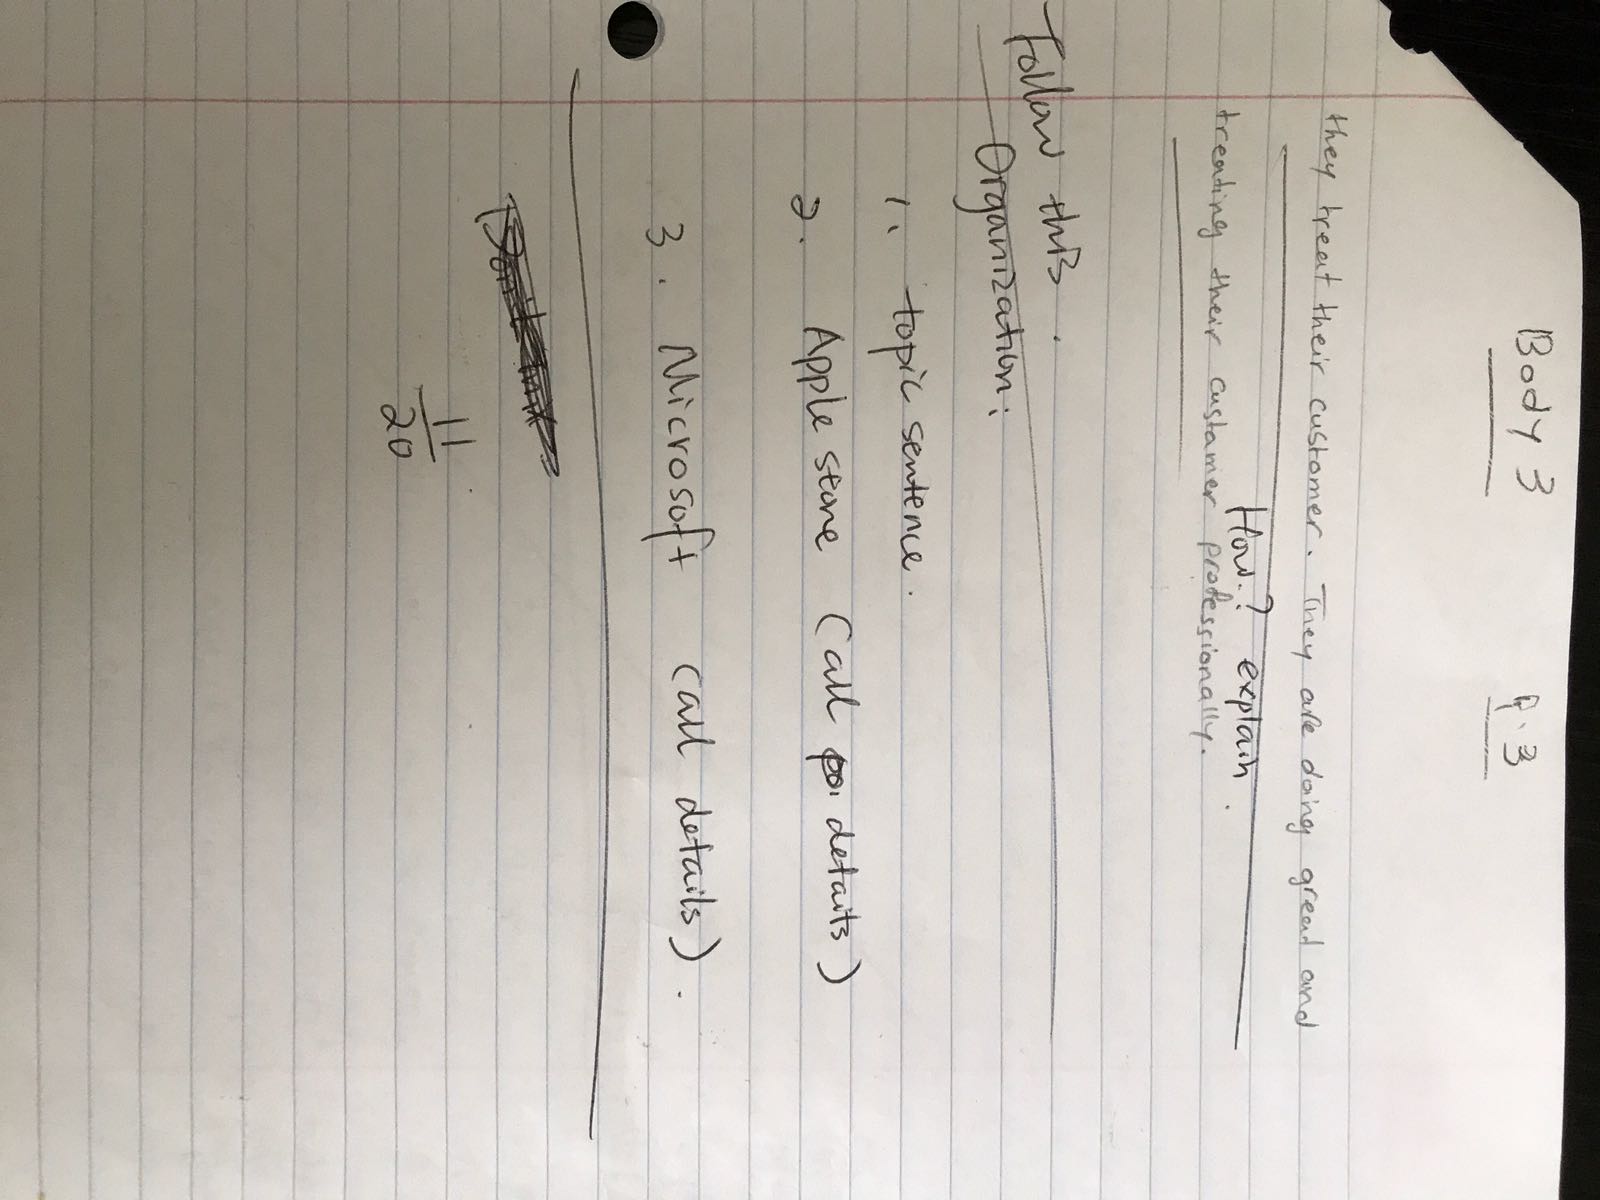 Body 3 p.3
they treat their customer. They are doing gread and
How? explain.
treating their custamer professionally.
Follow this
Organization:
1. topic sentence.
2. Apple store (all poi details)
3. Microsoft (all details).
11
20